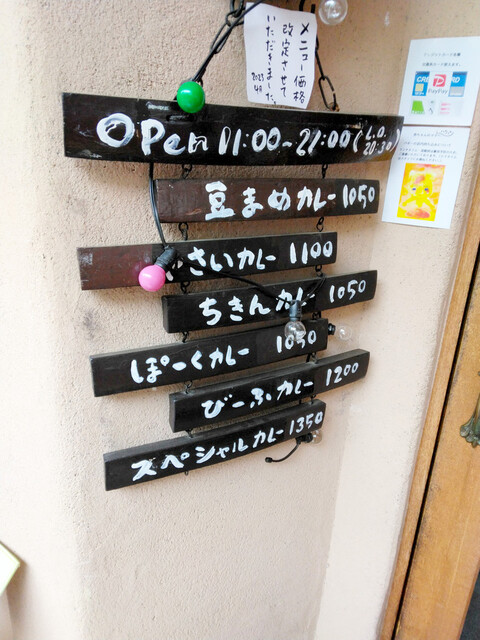 メニュー価格
改定させて
いただきました。
2023
4月
OPen 11:00~21:00(L.O. 20:30)
豆まめカレー 1050
さいカレー 1100
ちきんカレー 1050
ぽーくカレー 1050
びーふカレー 1200
スペシャルカレー 1350
PayPay